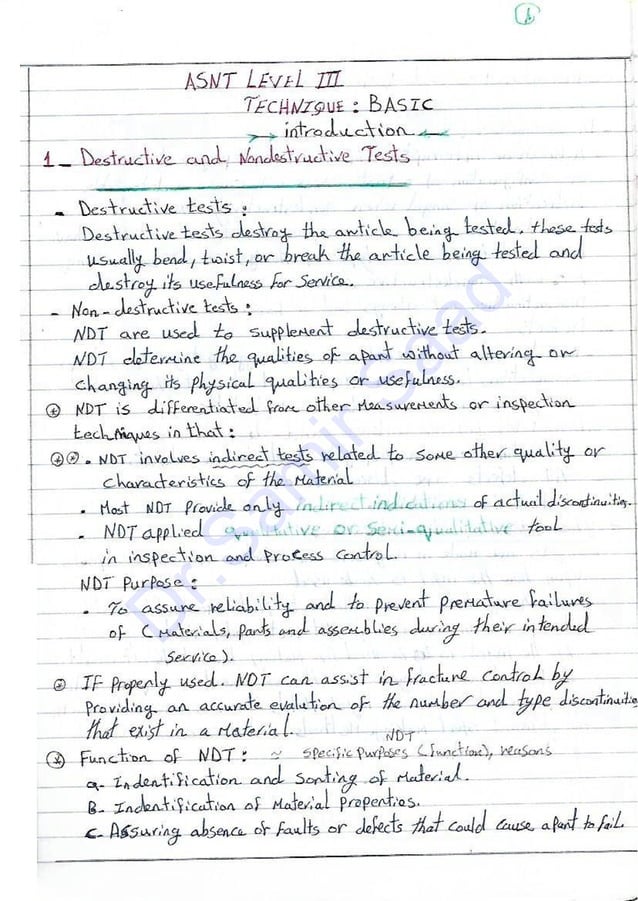 ASNT LEVEL III
TECHNIQUE: BASIC
introduction
1_ Destructive and Nondestructive Tests
- Destructive tests:
Destructive tests destroy the article being tested. these tests
usually bend, twist, or break the article being tested and
destroy its usefulness for service.
- Non-destructive tests:
NDT are used to supplement destructive tests.
NDT determine the qualities of a part without altering or
changing its physical qualities or usefulness.
NDT is differentiated from other measurements or inspection
techniques in that:
. NDT involves indirect tests related to some other quality or
characteristics of the material
. Most NDT Provide only indirect indications of actual discontinuities.
. NDT applied qualitative or semi-qualitative tool
in inspection and process control.
NDT Purpose:
. To assure reliability and to prevent premature failures
of (materials, parts and assemblies during their intended
service).
IF Properly used. NDT can assist in fracture control by
Providing an accurate evalution of the number and type discontinuities
that exist in a material.
NDT
Function of NDT: ~ specific purposes (function), reasons
a- Indentification and sorting of material.
B- Indentification of Material Properties.
C- Assuring absence of faults or defects that could cause a part to fail.
Dr. Samir Saad